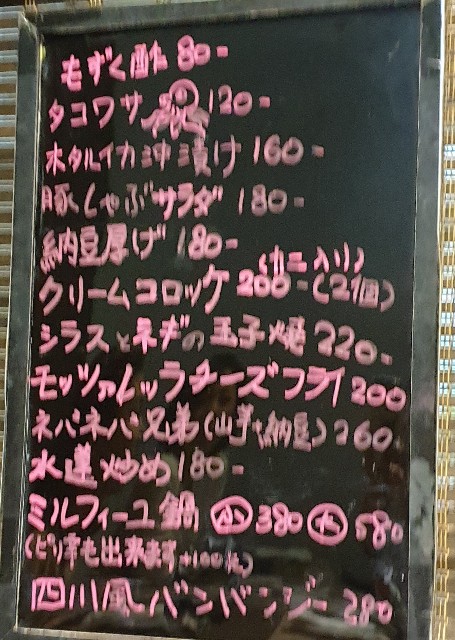 もずく酢 80-
タコワサ 120-
ホタルイカ沖漬け 160-
豚しゃぶサラダ 180-
納豆厚げ 180-
(カニ入り)
クリームコロッケ 200-(2個)
シラスとネギの玉子焼 220-
モッツァレッラチーズフライ 200
ネバネバ兄弟(山芋+納豆) 260
水蓮炒め 180-
ミルフィーユ鍋 小 380 大 580
(ピリ辛も出来ます+100元)
四川風バンバンジー 280